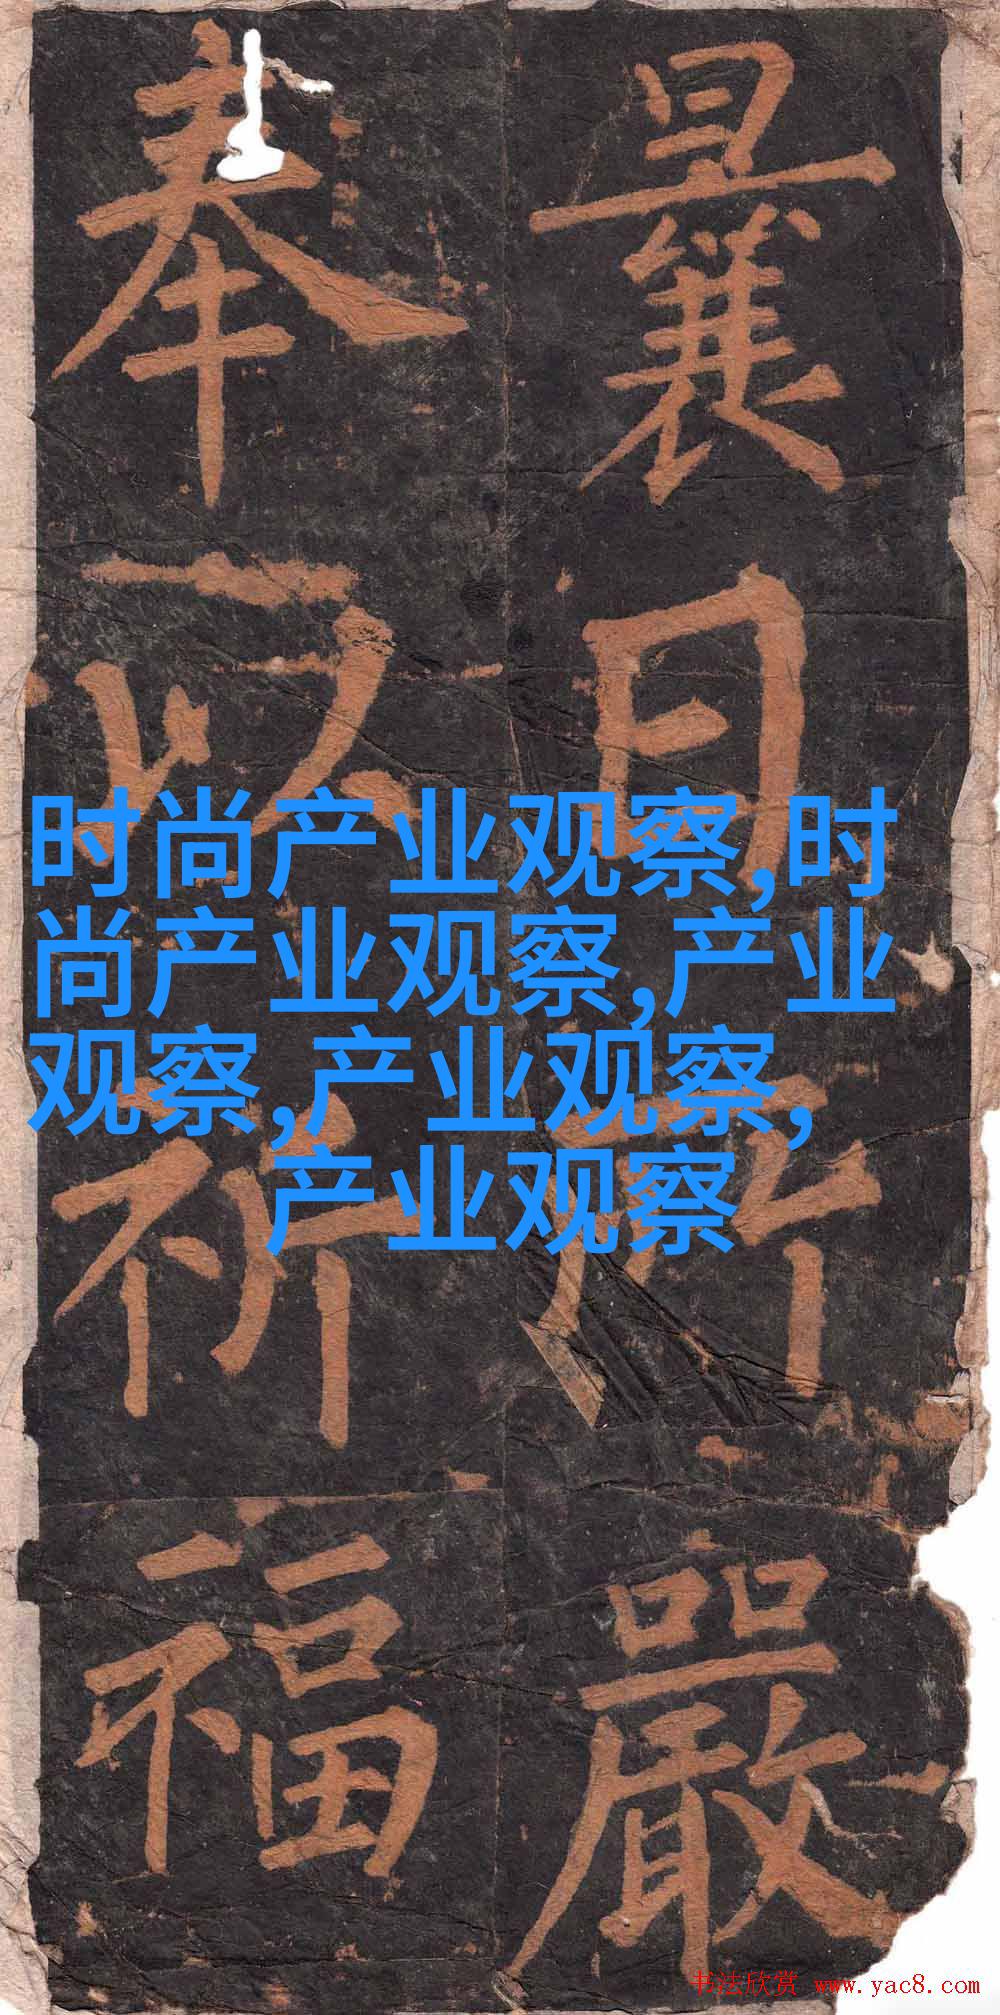 曩日所嚴
奉以祈福
时尚产业观察,时
尚产业观察,产业
观察,产业观察,
产业观察
书法欣赏 www.yac8.com